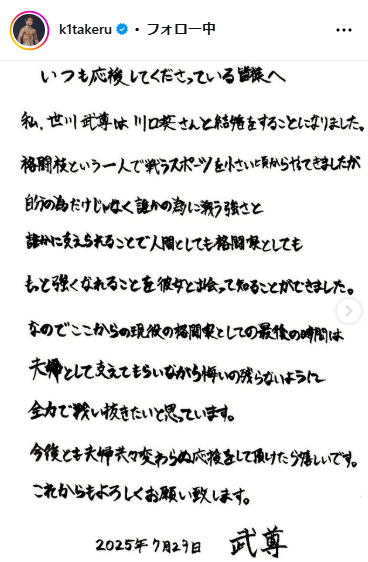 k1takeru • フォロー中
いつも応援してくださっている皆様へ
私、世川武尊は川口葵さんと結婚をすることになりました。
格闘技という一人で戦うスポーツを小さい頃からやってきましたが
自分の為だけじゃなく誰かの為に戦う強さと
誰かに支えられることで人間としても格闘家としても
もっと強くなれることを彼女と出会って知ることができました。
なのでここからの現役の格闘家としての最後の時間は
夫婦として支えてもらいながら悔いの残らないように
全力で戦い抜きたいと思っています。
今後とも夫婦共々変わらぬ応援をして頂けたら嬉しいです。
これからもよろしくお願い致します。
2025年7月29日 武尊